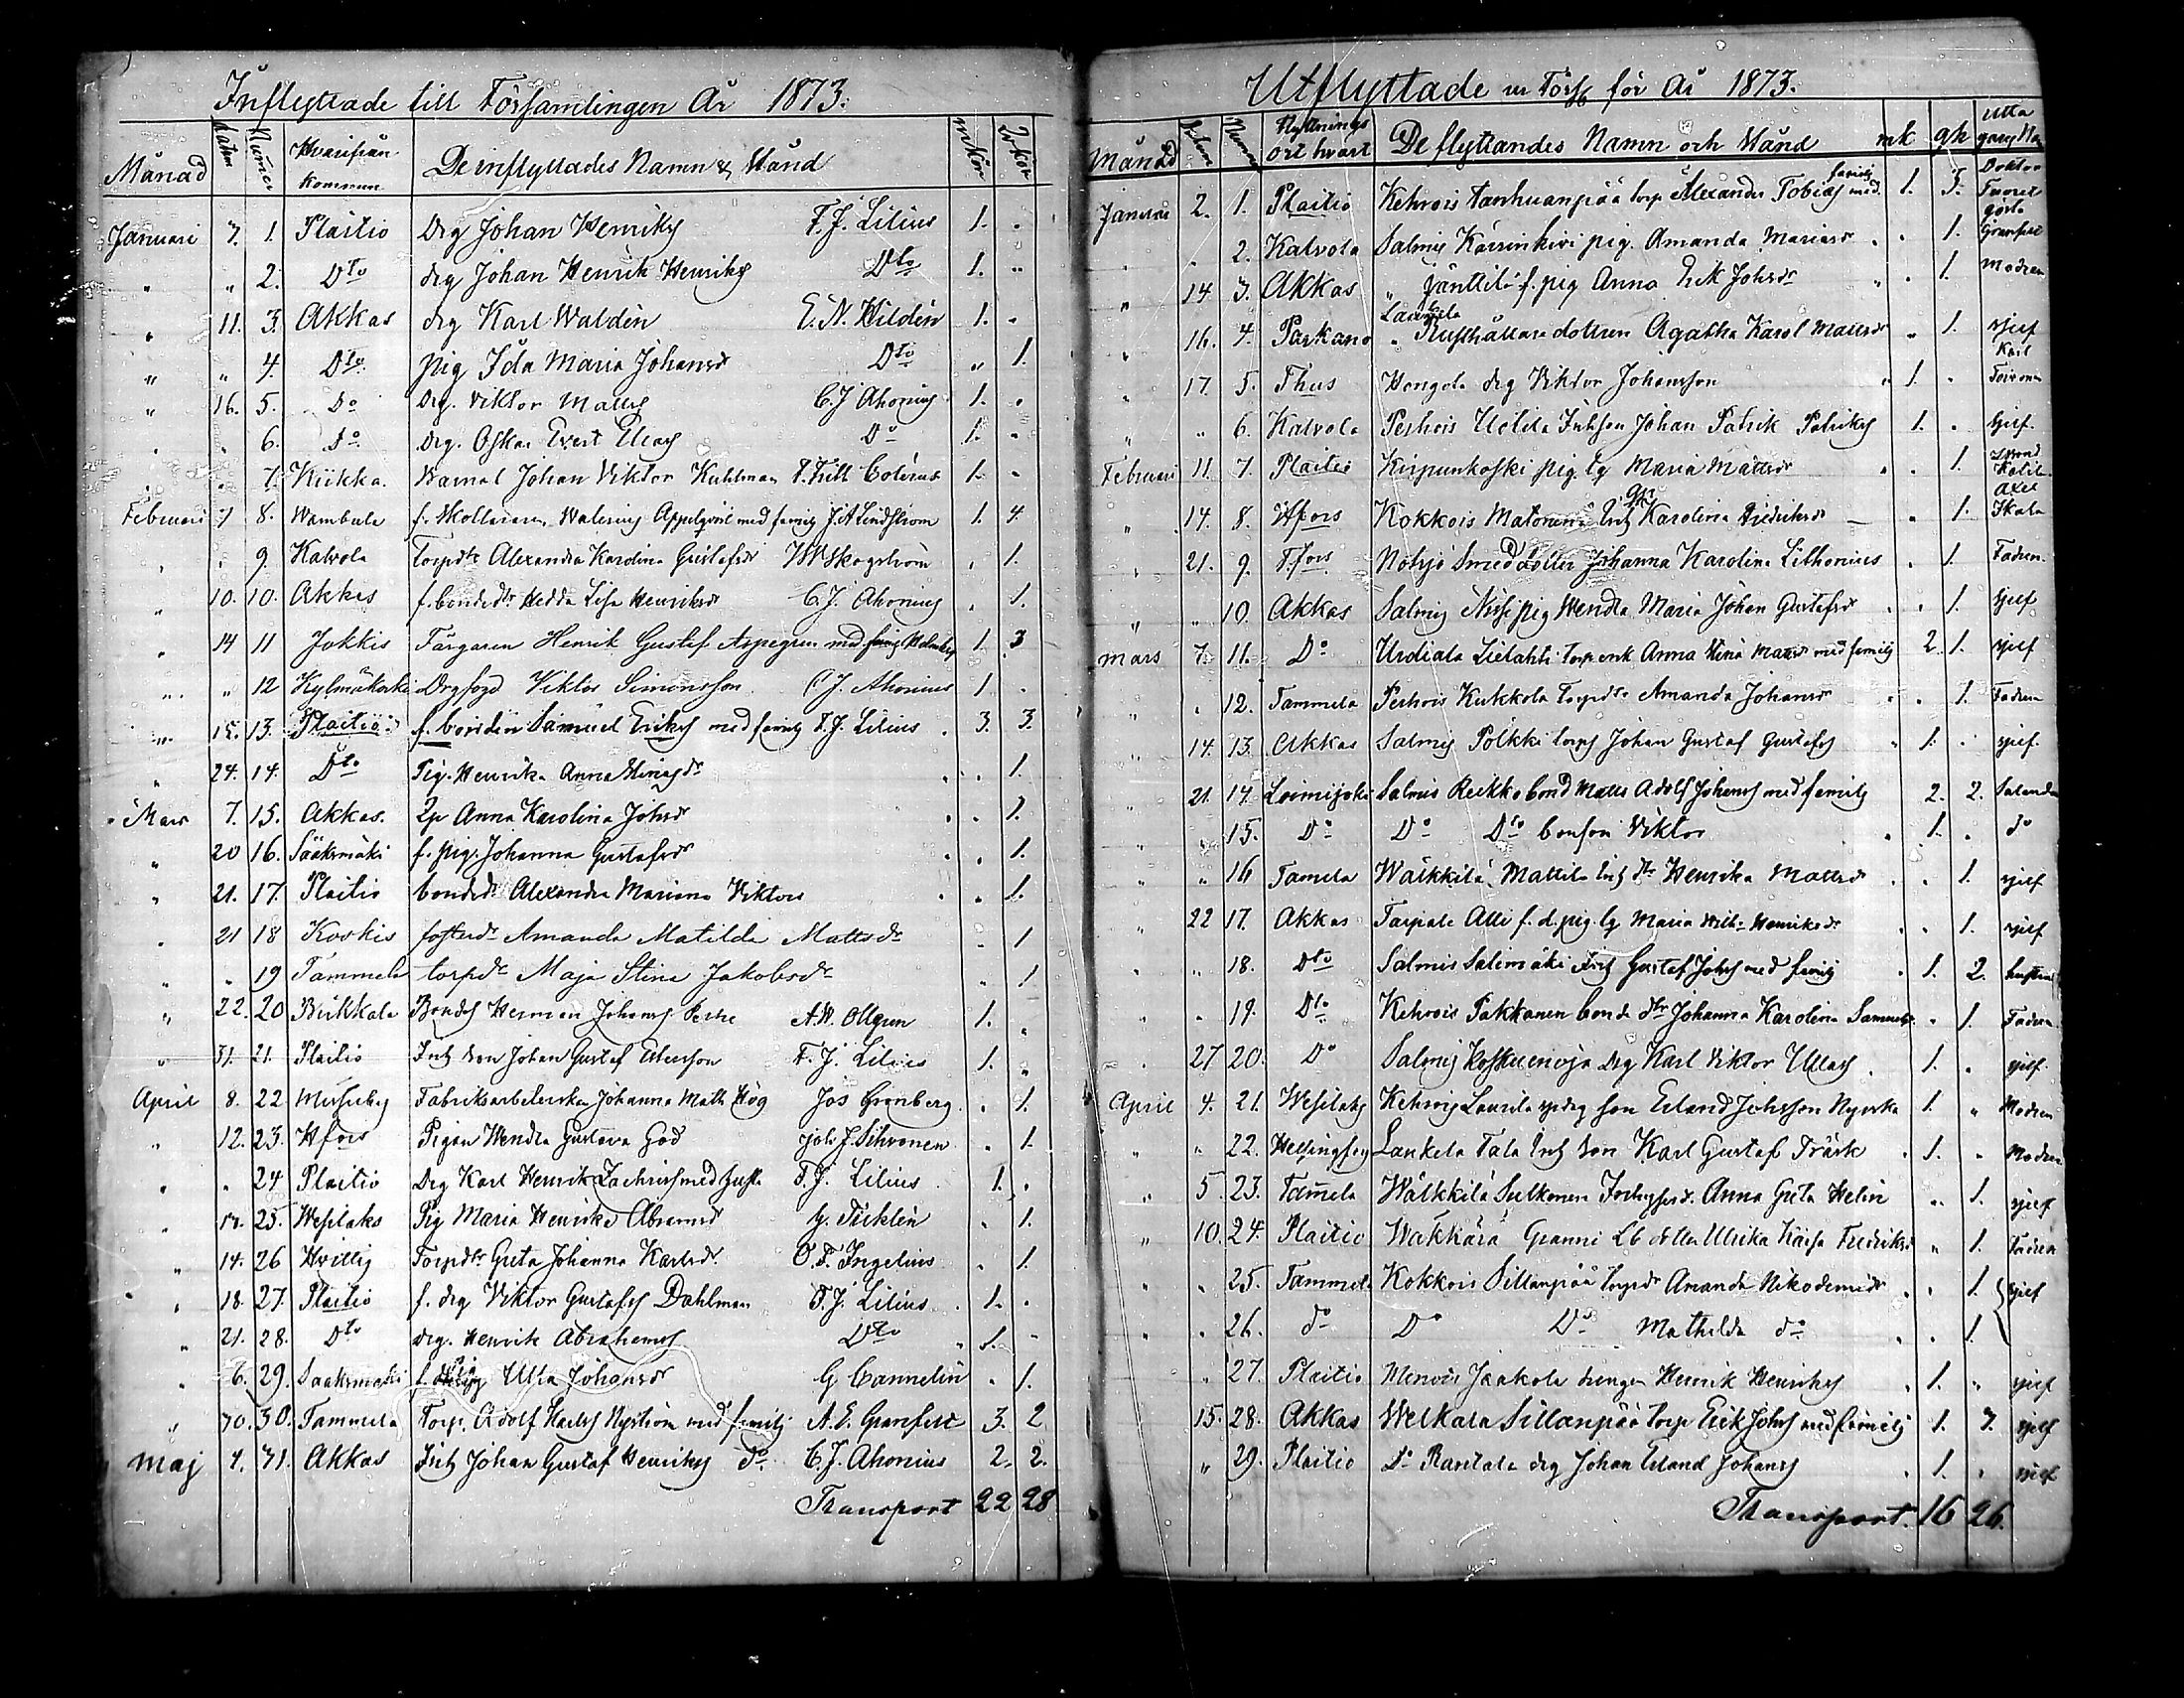 Inflyttade till Församlingen År 1873.
Månad Datum Numer Hvarifrån kommun De inflyttades Namn & Stånd m kön Qv kön
Januari 7. 1. Plaitio Drg Johan Henriks F. J. Lilius 1. "
" " 2. Dto drg Johan Henrik Henriks Dto 1. "
" 11. 3. Akkas drg Karl Waldén E. N. Hildén 1. "
" " 4. Dto pig Ida Maria Johansdr Dto " 1.
" 16. 5. Do drg. Viktor Matts C. J Ahonius 1. "
" " 6. Do drg. Oskar Evert Elias Do 1. "
" " 7. Kiikka. Viktor Kuhlman 1. "
Februari 7 8. Wambula f. Skollararen Walerius Appelqvist med familj J. A Lindstrom 1. 4.
" " 9. Kalvola Torpdtr Alexandra Karolina Gustafsdr Skogström " 1.
" 10. 10. Akkas f. bondedtr Hedda Lisa Henriksdr C. J. Ahonius " 1.
" 14 11 Jokkis Färgaren Henrik Gustaf Aspegren med familj 1. 3
" " 12 Kylmäkoski Viktor Simonsson C J. Ahonius 1 "
" 15. 13. Plaitio f. bonden Samuel Eriks med familj F. J. Lilius 3. 3.
" 24. 14. Dto Pig. Henrika Anna " 1.
Mars 7. 15. Akkas. Anna Karolina Johsdr " 1.
" 20 16. Sääksmäki f. pig. Johanna Gustafsdr " 1.
" 21. 17. Plaitio bondedr Alexandra Mariana Viktors " 1.
" 21 18 Koskis fosterdr Amanda Matilda Mattsdr " 1
" " 19 Tammela torpdr Maja Stina Jakobsdr " 1
" 22. 20 Birkkala Bonds Herman Johans A. W. Ollgren 1. "
" 31. 21. Plaitio Inh son Johan Gustaf F. J. Lilius 1. "
April 8. 22 Fabriksarbeterskan Johanna Math Hög Jos Grönberg " 1.
" 12. 23. Hfors Pigan Wendla Gustava God Joh J. Sihvonen " 1.
" " 24 Plaitio Drg Karl Henrik med hustr F. J. Lilius 1. "
" 25. Wesilaks Pig Maria Henrika Abramsdr G. Ticklén " 1.
" 14. 26 Hvittis Torpdtr Greta Johanna Karlsdr. O. F. Ingelius " 1.
" 18. 27. Plaitio f. drg Viktor Gustafs Dahlman F. J. Lilius 1. "
" 21. 28. Dto drg. Henrik Abrahams Dto 1. "
" 29. Sääksmäki f. pig Ulla Johansdr G Cannelin " 1.
" 30. 30. Tammela Torp. Adolf Karls Nyström med familj A. E. Granfelt 3. 2
Maj 4. 31. Akkas Inh Johan Gustaf Henriks do C. J. Ahonius 2. 2.
Transport 22 28
Utflyttade ur Förs för År 1873.
Månad Datum Numer flyttnings ort hvart De flyttandes Namn och Stånd mk qk
Januari 2. 1. Plaitio Kehrois tanhuanpää torp Alexander Tobias med familj 1. 3. Doktor
" " 2. Kalvola Salmis Kärsinkivi pig. Amanda Mariasdr " 1. Granfelt
" 14 3. Akkas " Jänttilä f. pig Anna Erik Johsdr " 1. Modren
" 16. 4. Parkano Laukela Rusthållare dottren Agatha Karol Mattsdr " 1. sjelf
" 17. 5. Thus Hongola drg Viktor Johansson 1. "
" " 6. Kalvola Peshois Uotila Inhson Johan Patrik Patriks 1. " sjelf.
Februari 11. 7. Plaitio Kirpunkoski pig. Maria Mattsdr " 1.
" 14. 8. Hfors Kokkois Matomena Inh Karolina Fredriksdr " 1.
" 21. 9. T.fors Notsjö Smed dotter Johanna Karolina Lithonius " 1. Fadren.
" " 10. Akkas Salmis pig Wendla Maria Johan Gustafsdr " 1. Sjelf
Mars 7. 11. Do Urdiala Lielahti Torp enk Anna Stina Mattsdr med familj 2. 1. sjelf
" " 12. Tammela Peshois Kukkola Torpdtr Amanda Johansdr " 1. Fadren
" 14. 13. Akkas Salmis Pölkki torps Johan Gustaf Gustafs 1. " sjelf.
" 21. 14. Loimijoki Salmis Reikko bond Matts Adolf Johans med familj 2. 2.
" " 15. Do Do Dto bonson Viktor 1. " do
" " 16 Tamela Wälkkilä Mattila Inh dtr Henrika Mattsdr " 1. sjelf
" 22 17. Akkas Tarpala Alli f. d. pig. Maria Wilh Henriksdr " 1. sjelf
" " 18. Dto Salmis Salimäki Inh Gustaf Johs med familj 1. 2.
" " 19. Dto Kehrois Pakkanen bonde dtr Johanna Karolina " 1. Fadren
" 27 20. Do Salmis Koskuenoja Drg Karl Viktor 1. " sjelf.
April 4. 21. Wesilaks Kehrois Laurila son Erland Johsson 1. " Modren
" " 22. Helsingfors Laukela Tala Inh son Karl Gustaf Träsk 1. " Modren
" 5. 23. Tamela Wälkkilä Sulkonen Anna Greta Helin " 1. sjelf
" 10. 24. Plaitio Wakkärä Granni dotter Ulrika Kaisa Fredriksd " 1. Fadren
" " 25. Tammela Kokkois Sillanpää torpdr Amanda Nikodemidr " 1. sjelf
" " 26. do Do Do Mathilda do " 1.
" " 27. Plaitio Menois Jaakola drengen Henrik Henriks 1. " sjelf
15. 28. Akkas Welkala Sillanpää torp Erik Johs med familj 1. 3. sjelf
" 29. Plaitio Do Rantala drg Johan Erland Johans 1. " sjelf
Transport. 16 26.